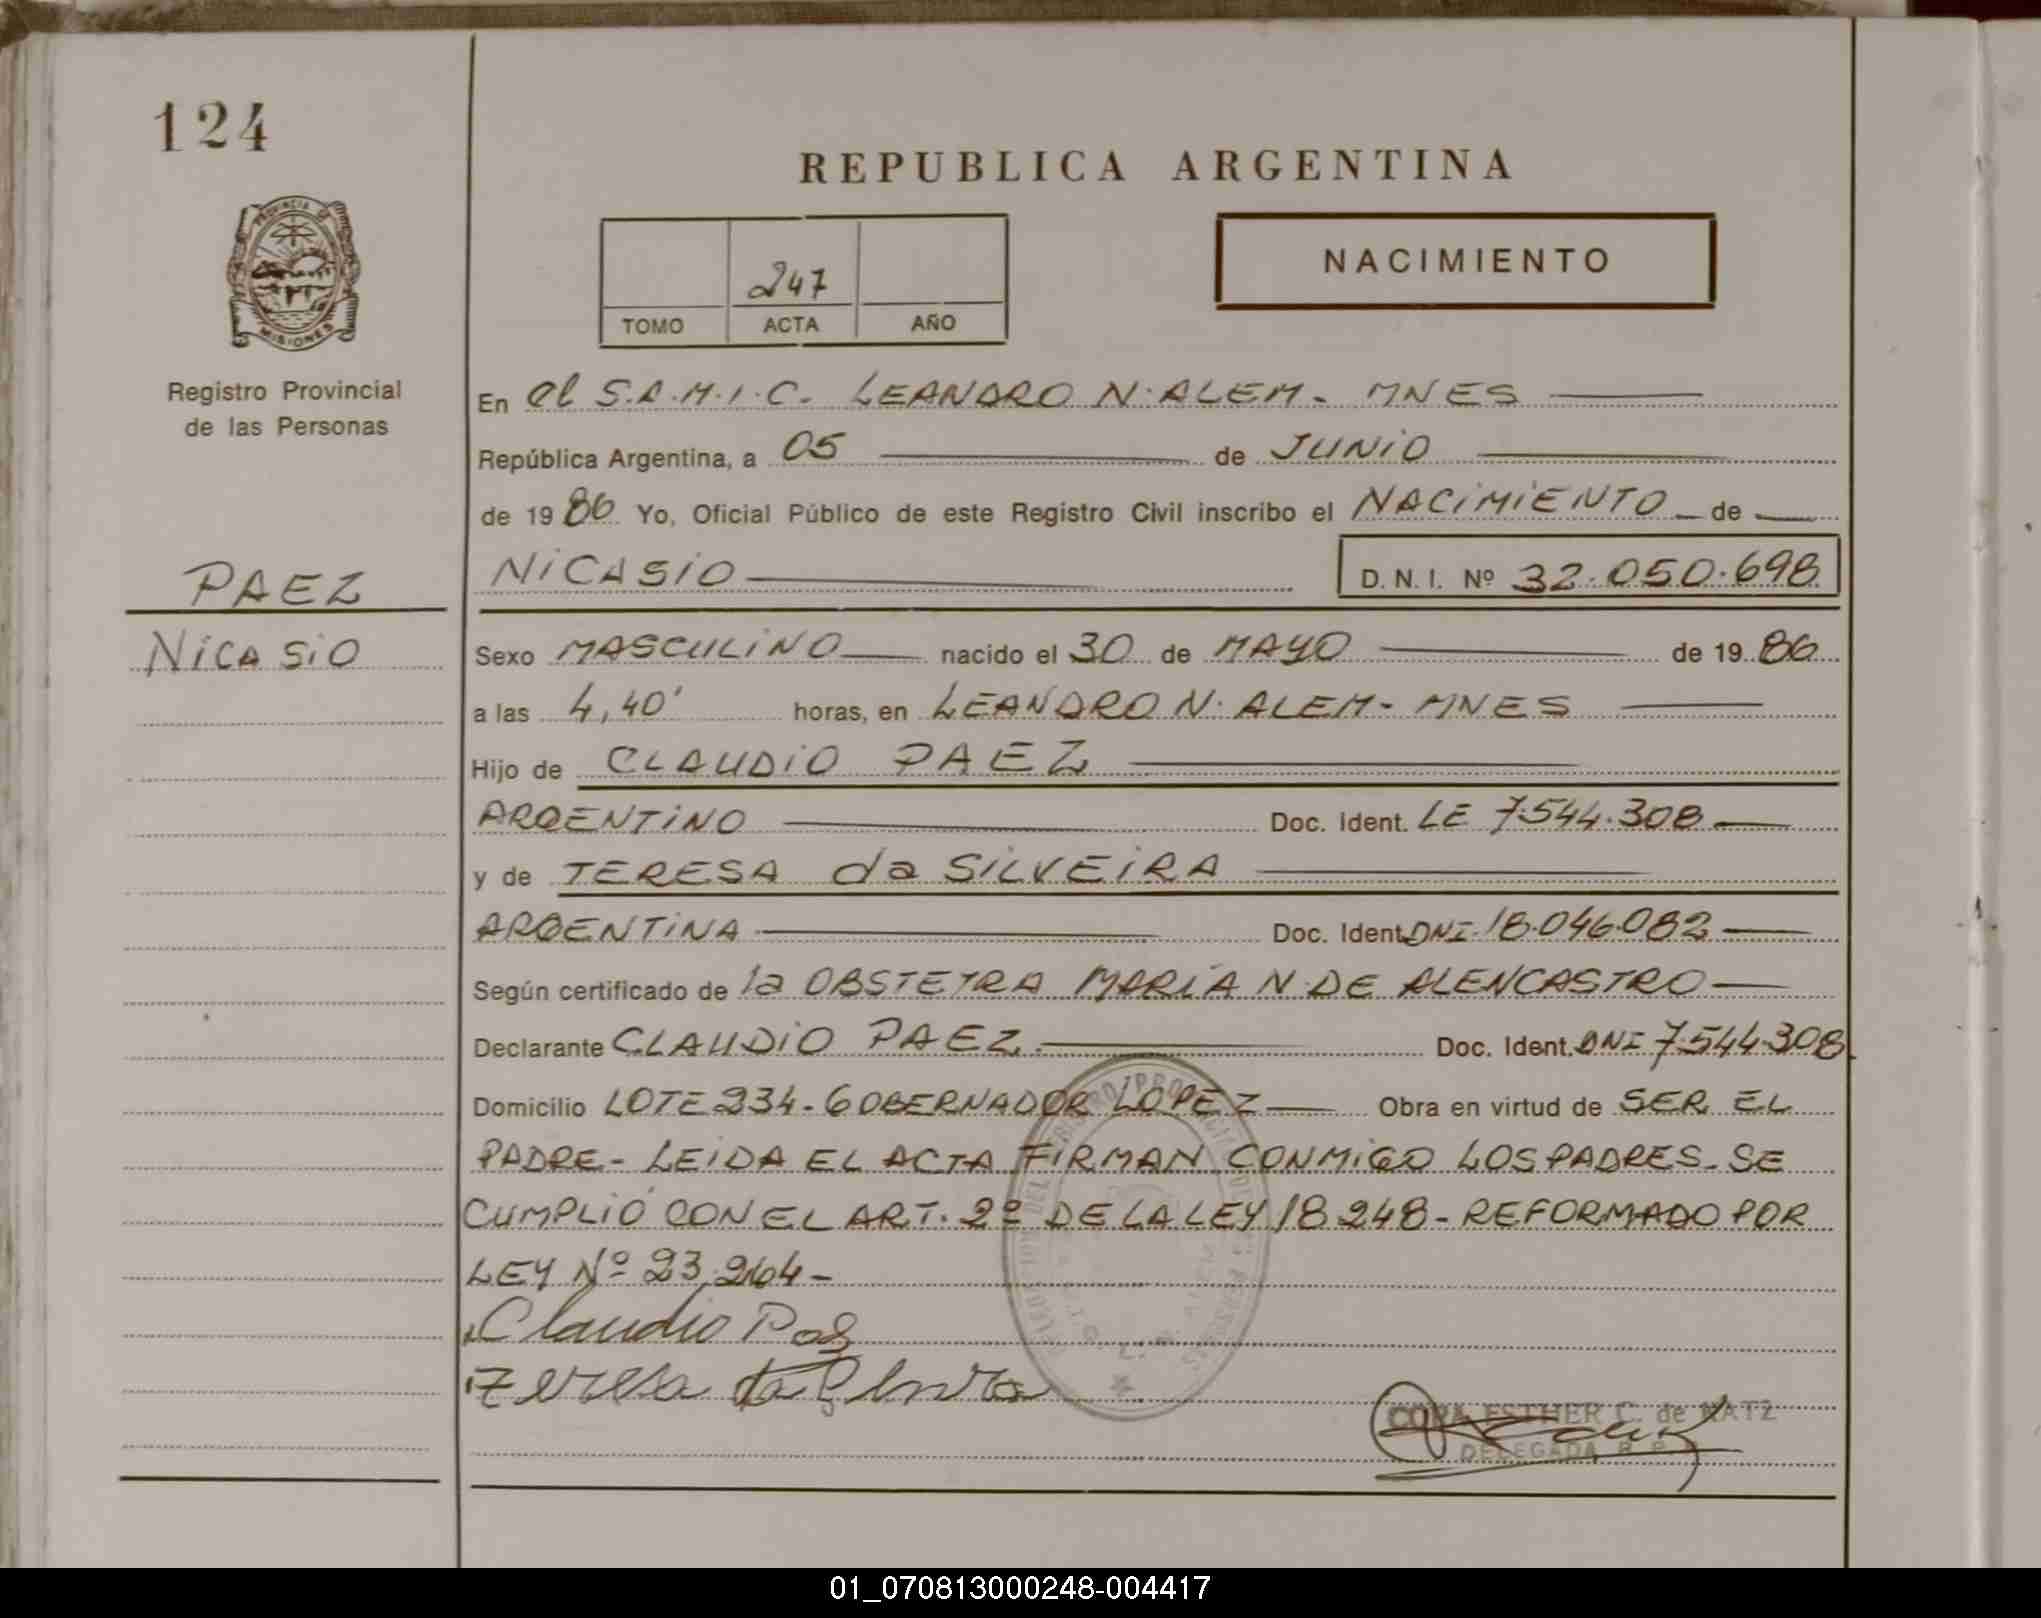 124
REPUBLICA ARGENTINA
PROVINCIA DE
MISIONES
247
TOMO ACTA AÑO
NACIMIENTO
Registro Provincial
de las Personas
En el S.A.M.I.C. LEANDRO N. ALEM - MNES
República Argentina, a 05 de JUNIO
de 19 86 Yo, Oficial Público de este Registro Civil inscribo el NACIMIENTO de
PAEZ
NICASIO D. N. I. Nº 32.050.698
NICASIO
Sexo MASCULINO nacido el 30 de MAYO de 19 86
a las 4,40' horas, en LEANDRO N. ALEM - MNES
Hijo de CLAUDIO PAEZ
ARGENTINO Doc. Ident. LE 7.544.308
y de TERESA da SILVEIRA
ARGENTINA Doc. Ident. DNI 18.046.082
Según certificado de la OBSTETRA MARÍA N. DE ALENCASTRO
Declarante CLAUDIO PAEZ Doc. Ident. DNI 7.544.308
Domicilio LOTE 234 - GOBERNADOR LOPEZ Obra en virtud de SER EL
PADRE - LEIDA EL ACTA FIRMAN CONMIGO LOS PADRES - SE
CUMPLIÓ CON EL ART. 2º DE LA LEY 18248 - REFORMADO POR
LEY Nº 23.264 -
Claudio Paez
Teresa da Silveira
ESTHER C. de KATZ
DELEGADA R. P.
01_070813000248-004417